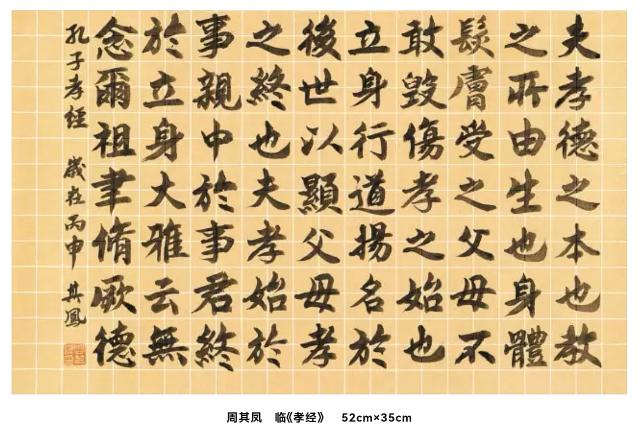 夫孝德之本也教
之所由生也身體
髮膚受之父母不
敢毀傷孝之始也
立身行道揚名於
後世以顯父母孝
之終也夫孝始於
事親中於事君終
於立身大雅云無
念爾祖聿脩厥德
孔子孝經 歲在丙申 其鳳
周其凤 临《孝经》 52cm×35cm